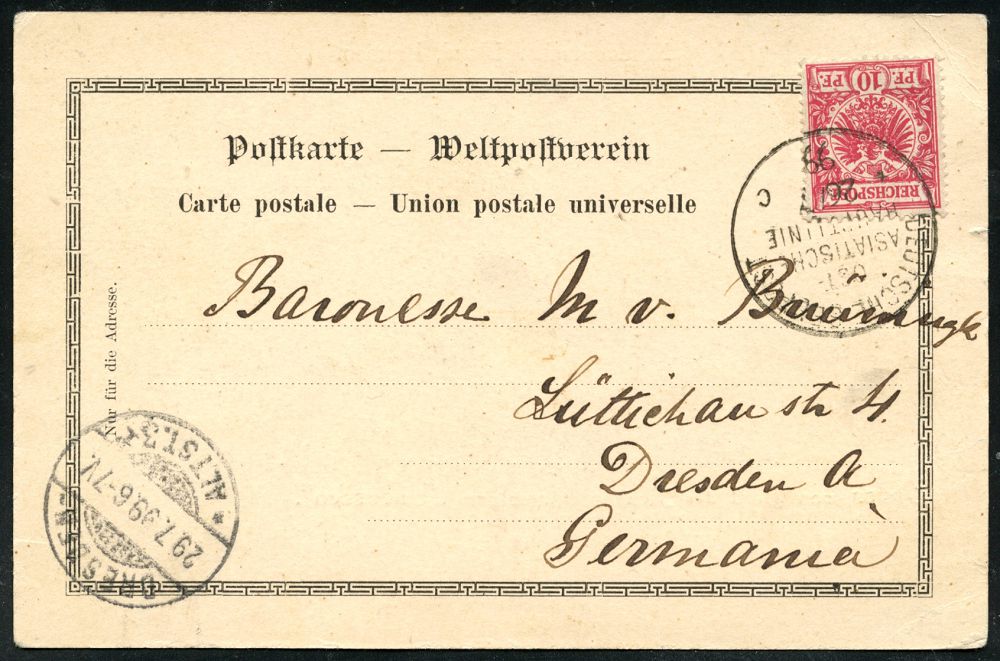 Postkarte — Weltpostverein
Carte postale — Union postale universelle
Nur für die Adresse.
PF. 10 PF.
REICHSPOST
DEUTSCHE
OST-
ASIATISCHE
HAUPTLINIE
C
99
Baronesse M v.
Lüttichau str 4.
Dresden A
Germania
DRESDEN
ALTST. 3
29.7.99. 6-7V.